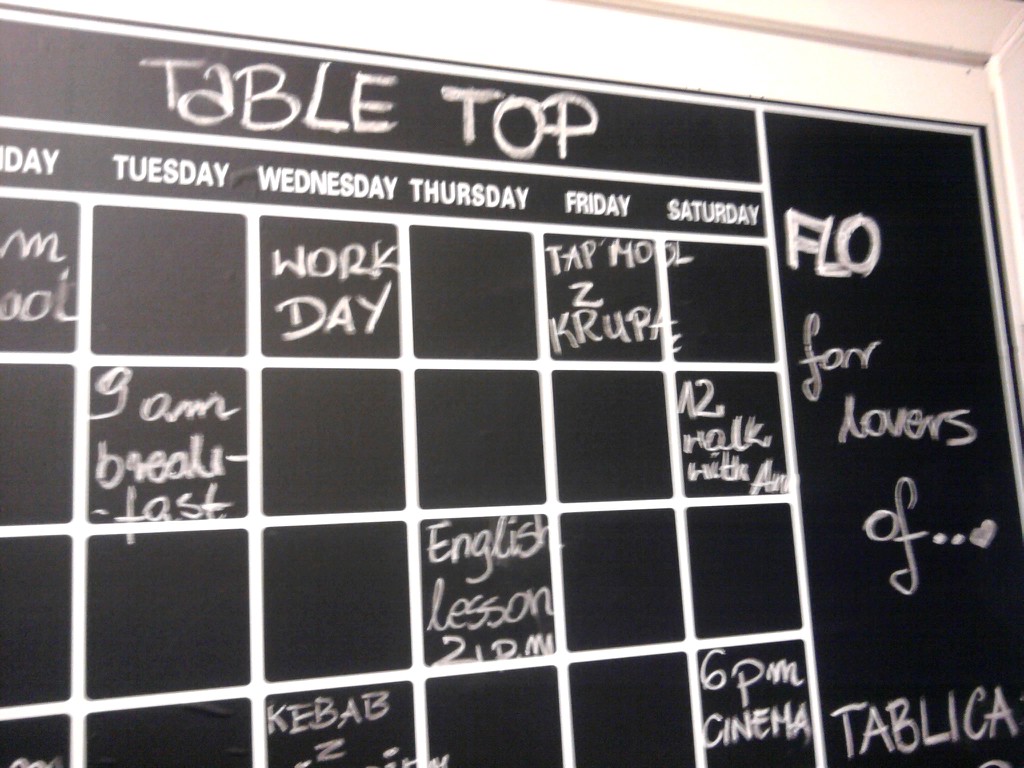 TaBLE TOP
TUESDAY WEDNESDAY THURSDAY FRIDAY SATURDAY
WORK
DAY
TAP'MOOL
Z
KRUPĄ
9 am
break-
-fast
12
walk
with
English
lesson
2 p.m
KEBAB
Z
6pm
CINEMA
FLO
for
lovers
of...
TABLICA